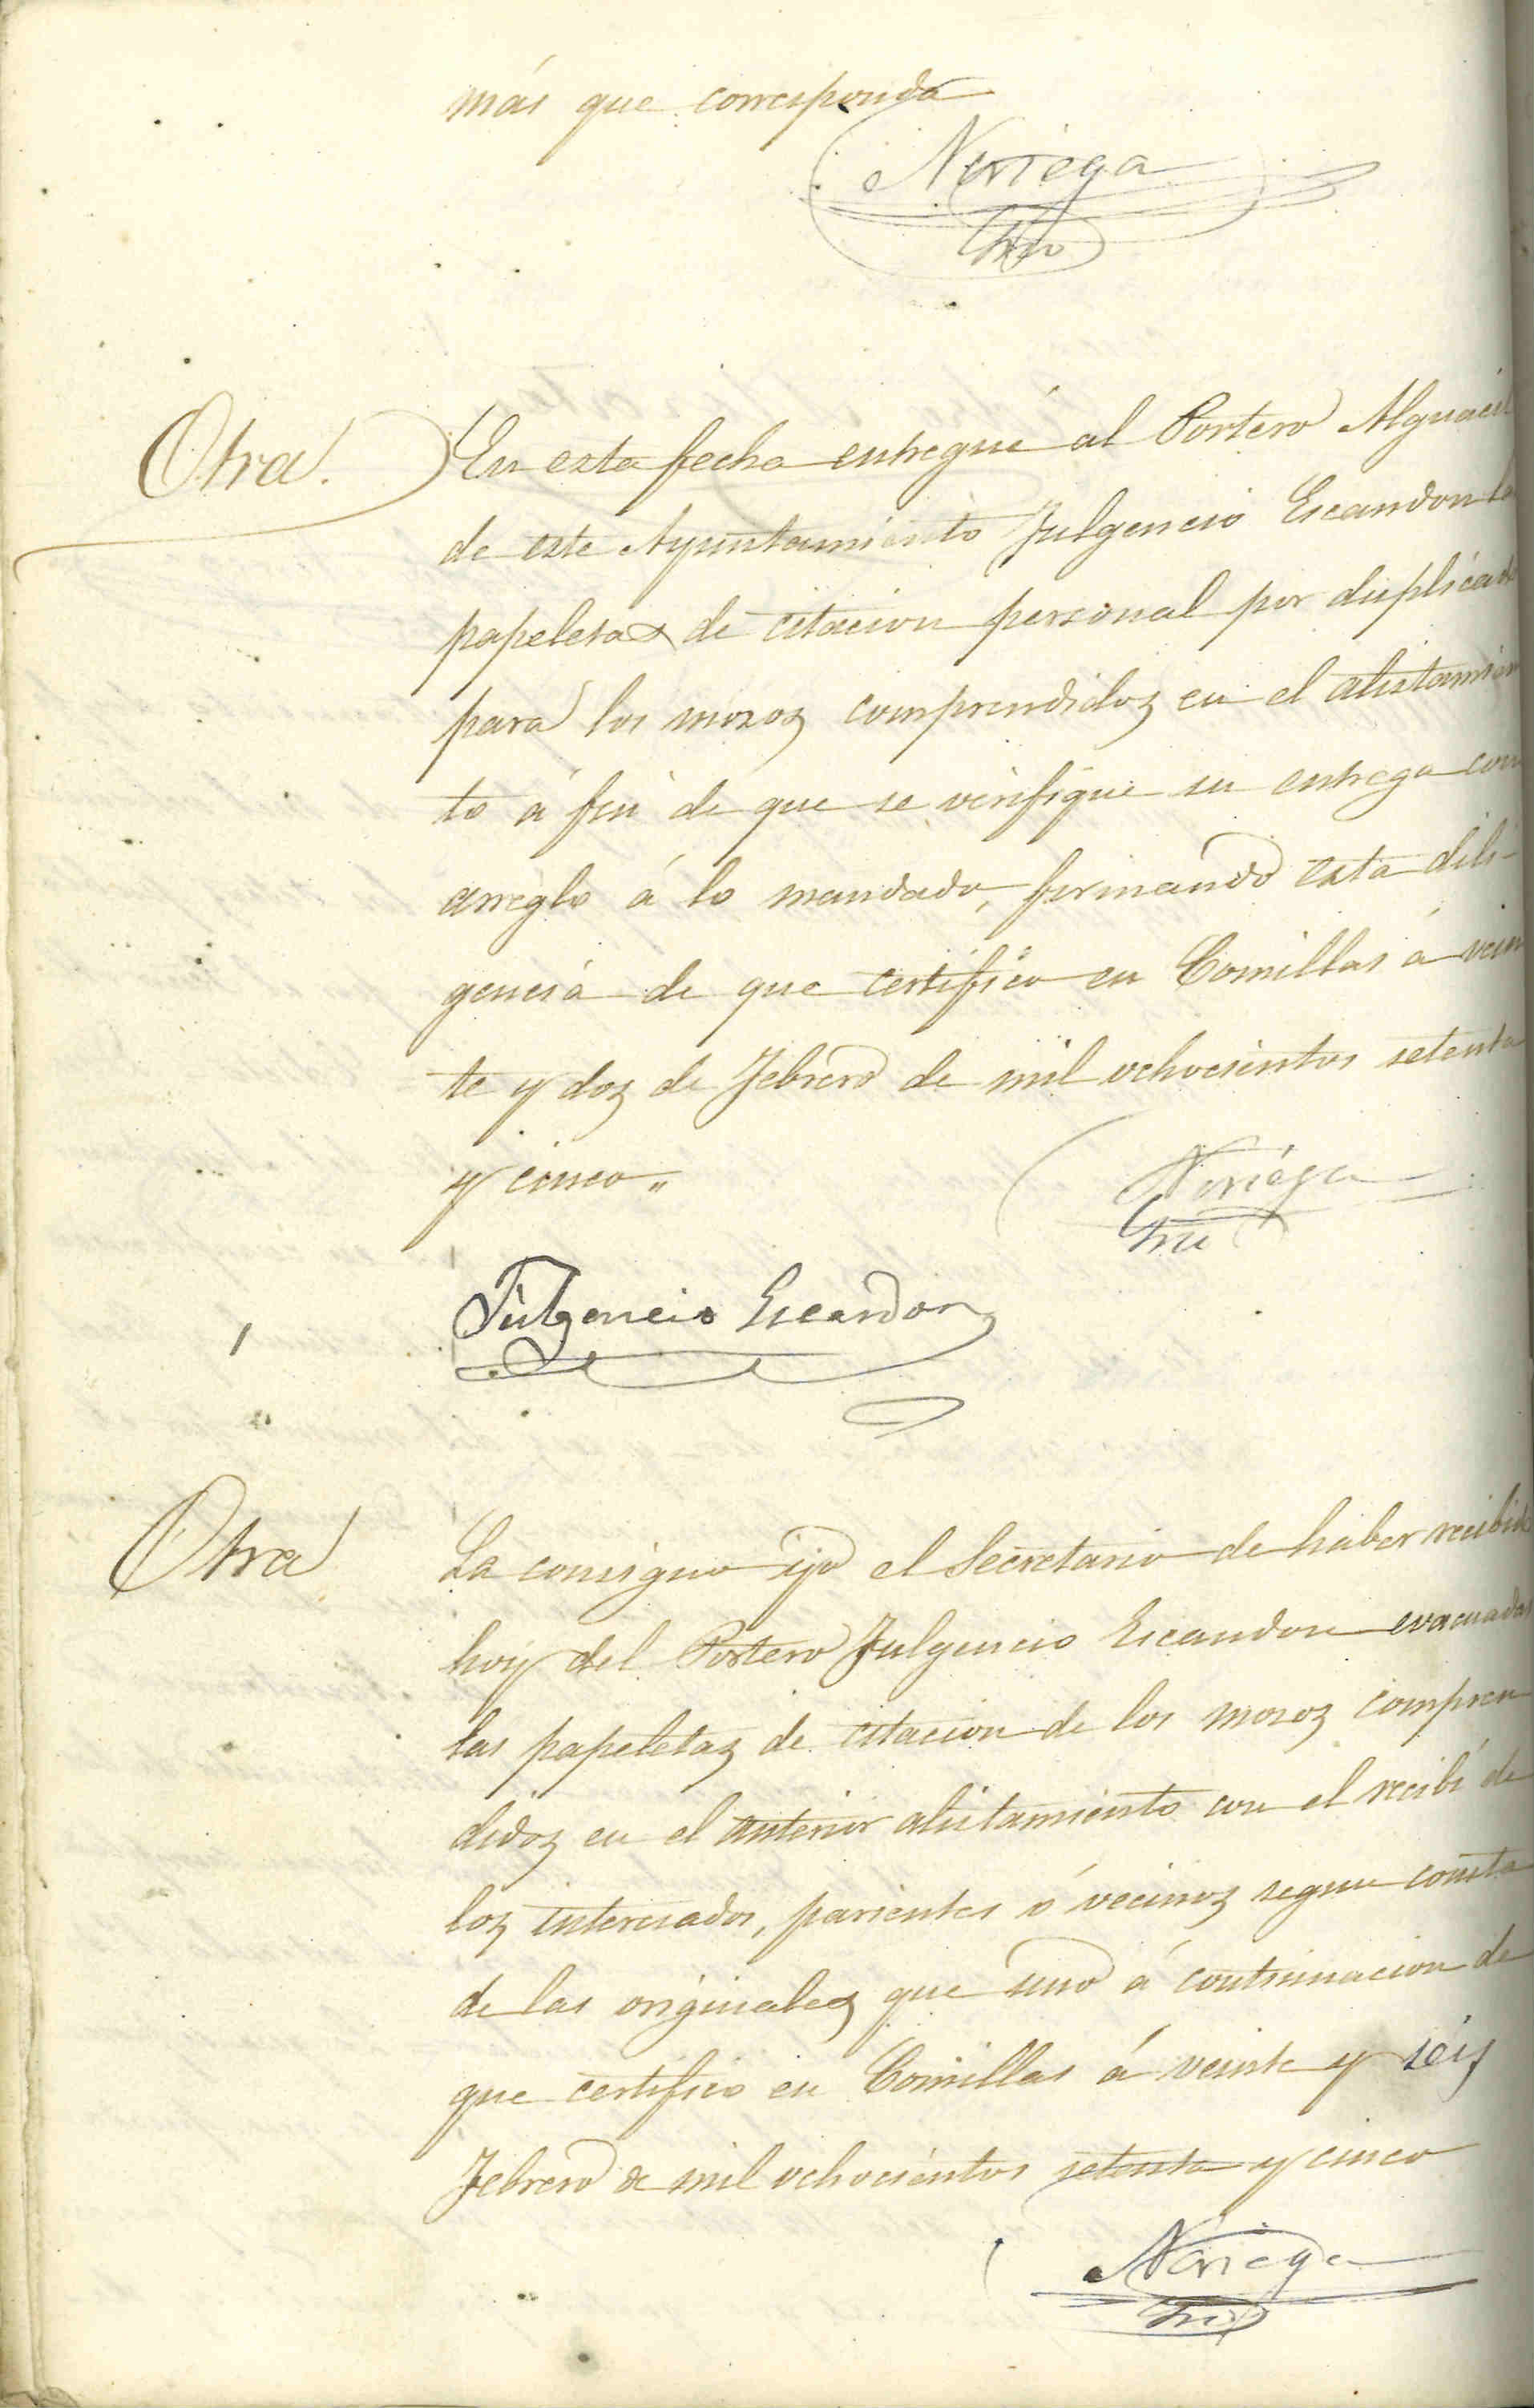 más que corresponda
Noriega
Srio
Otra.
En esta fecha entregué al Portero Alguacil
de este Ayuntamiento Fulgencio Escandon la
papeletas de citacion personal por duplicado
para los mozos comprendidos en el alistamien
to á fin de que se verifique su entrega con
arreglo á lo mandado, firmando esta dili-
gencia de que certifico en Comillas á vein
te y dos de Febrero de mil ochocientos setenta
y cinco„
Noriega
Srio
Fulgencio Escandon
Otra
La consigno yo el Secretario de haber recibido
hoy del Portero Fulgencio Escandon evacuadas
las papeletas de citacion de los mozos compren
didos en el anterior alistamiento con el recibí de
los interesados, parientes ó vecinos segun consta
de las originales que uno á continuacion de
que certifico en Comillas á veinte y seis
Febrero de mil ochocientos setenta y cinco
Noriega
Srio